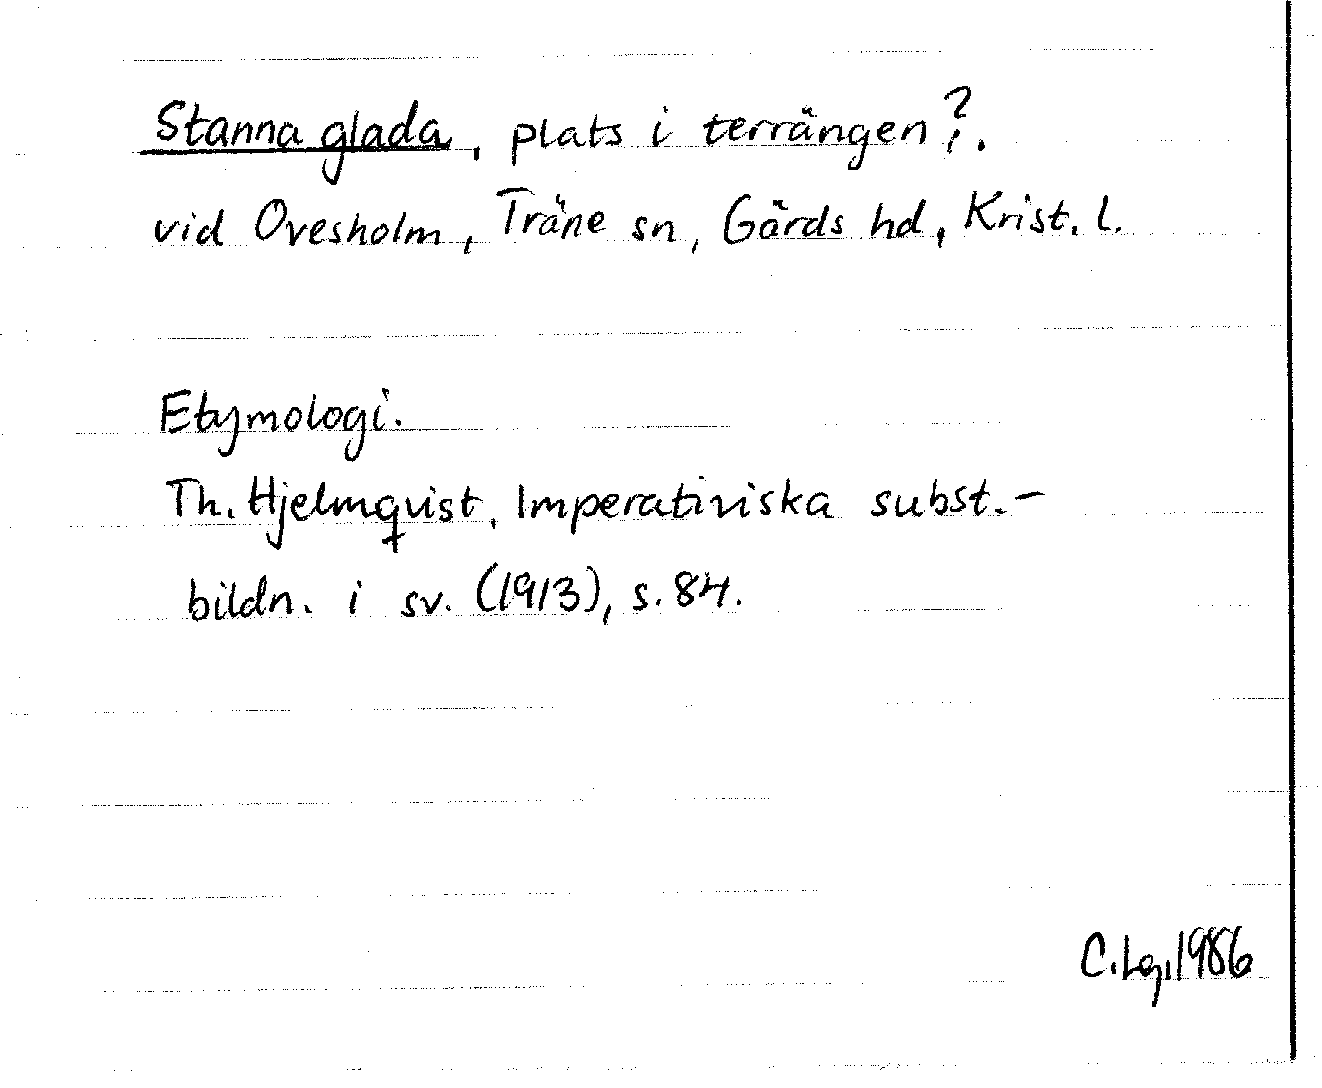 Stanna glada, plats i terrängen?.
vid Ovesholm, Träne sn, Gärds hd, Krist. l.
Etymologi.
Th. Hjelmqvist, Imperativiska subst.-
bildn. i sv. (1913), s. 84.
C. Lg, 1986